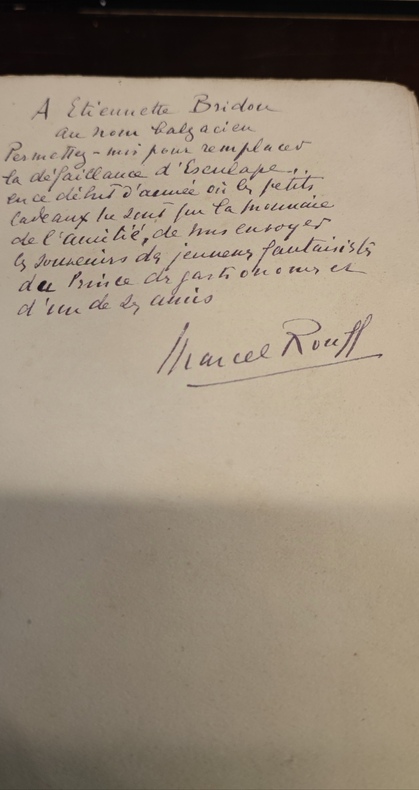 A Etiennette Bridou
au nom balzacien
Permettez-moi pour remplacer
la défaillance d'Esculape...
en ce début d'année où les petits
cadeaux ne sont que la monnaie
de l'amitié, de vous envoyer
les souvenirs de jeunesse fantaisistes
du Prince des gastronomes et
d'un de ses amis
Marcel Rouff